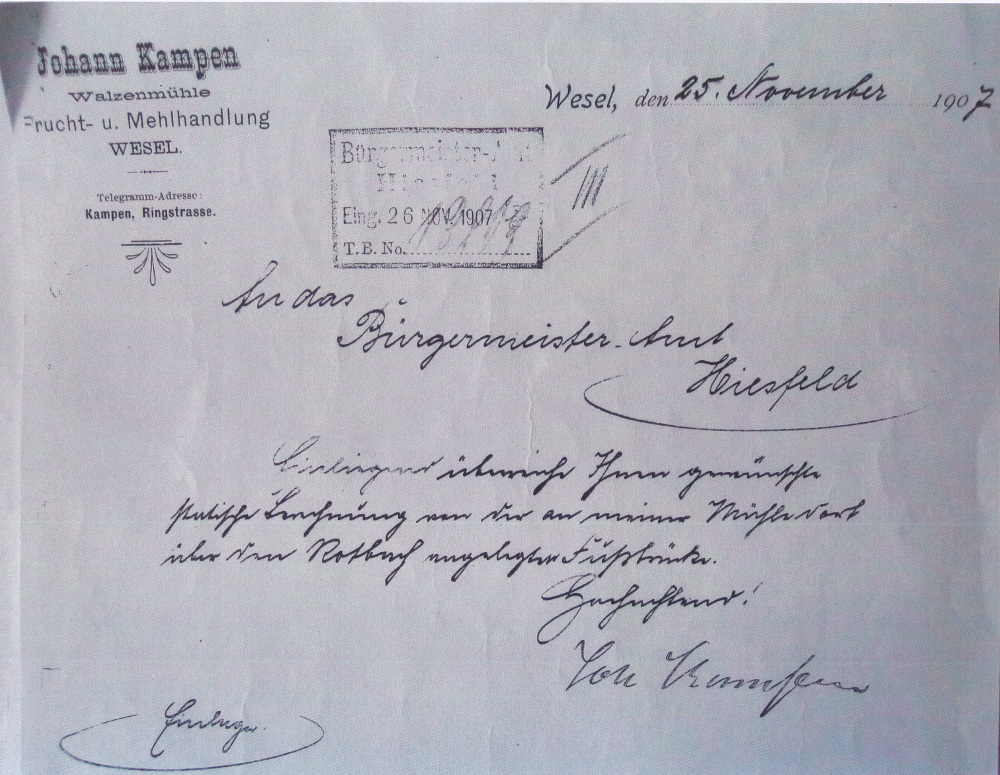 Johann Kampen
Walzenmühle
Frucht- u. Mehlhandlung
WESEL.
Telegramm-Adresse:
Kampen, Ringstrasse.
Wesel, den 25. November 1907
Bürgermeister-Amt
Hiesfeld
Eing. 26 NOV. 1907
T.B. No.
III
An das
Bürgermeister-Amt
Hiesfeld
Einliegend überreiche Ihnen gewünschte
statische Berechnung von der an meiner Mühle dort
über den Rotbach angelegten Fußbrücke.
Hochachtend!
Joh Kampen
Einlage.